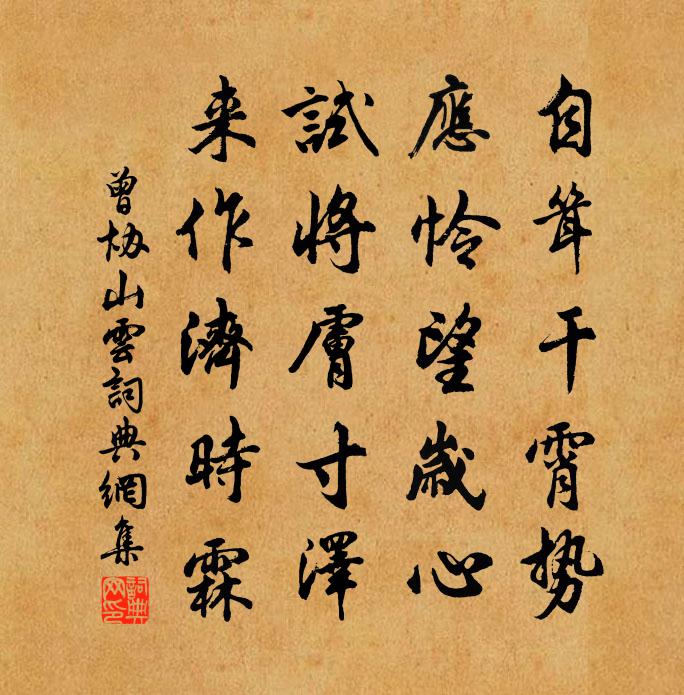 自耸干霄勢
應怜望歲心
試將膚寸澤
来作濟時霖
曾協山雲詞典網集
詞典网印